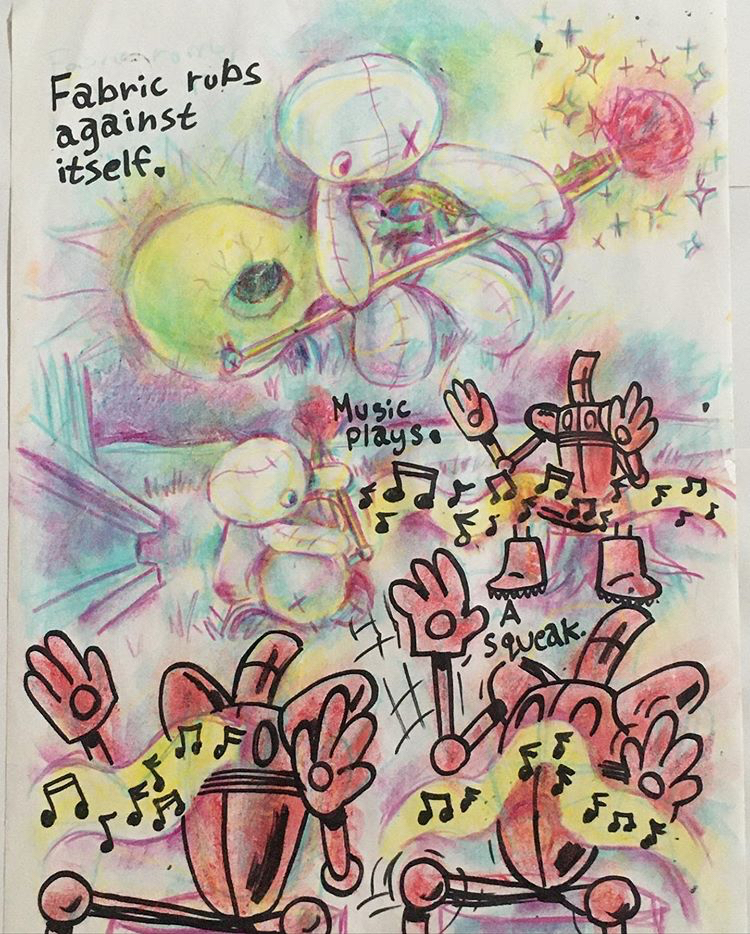 Fabric rubs
against
itself.
Music
plays.
A
squeak.